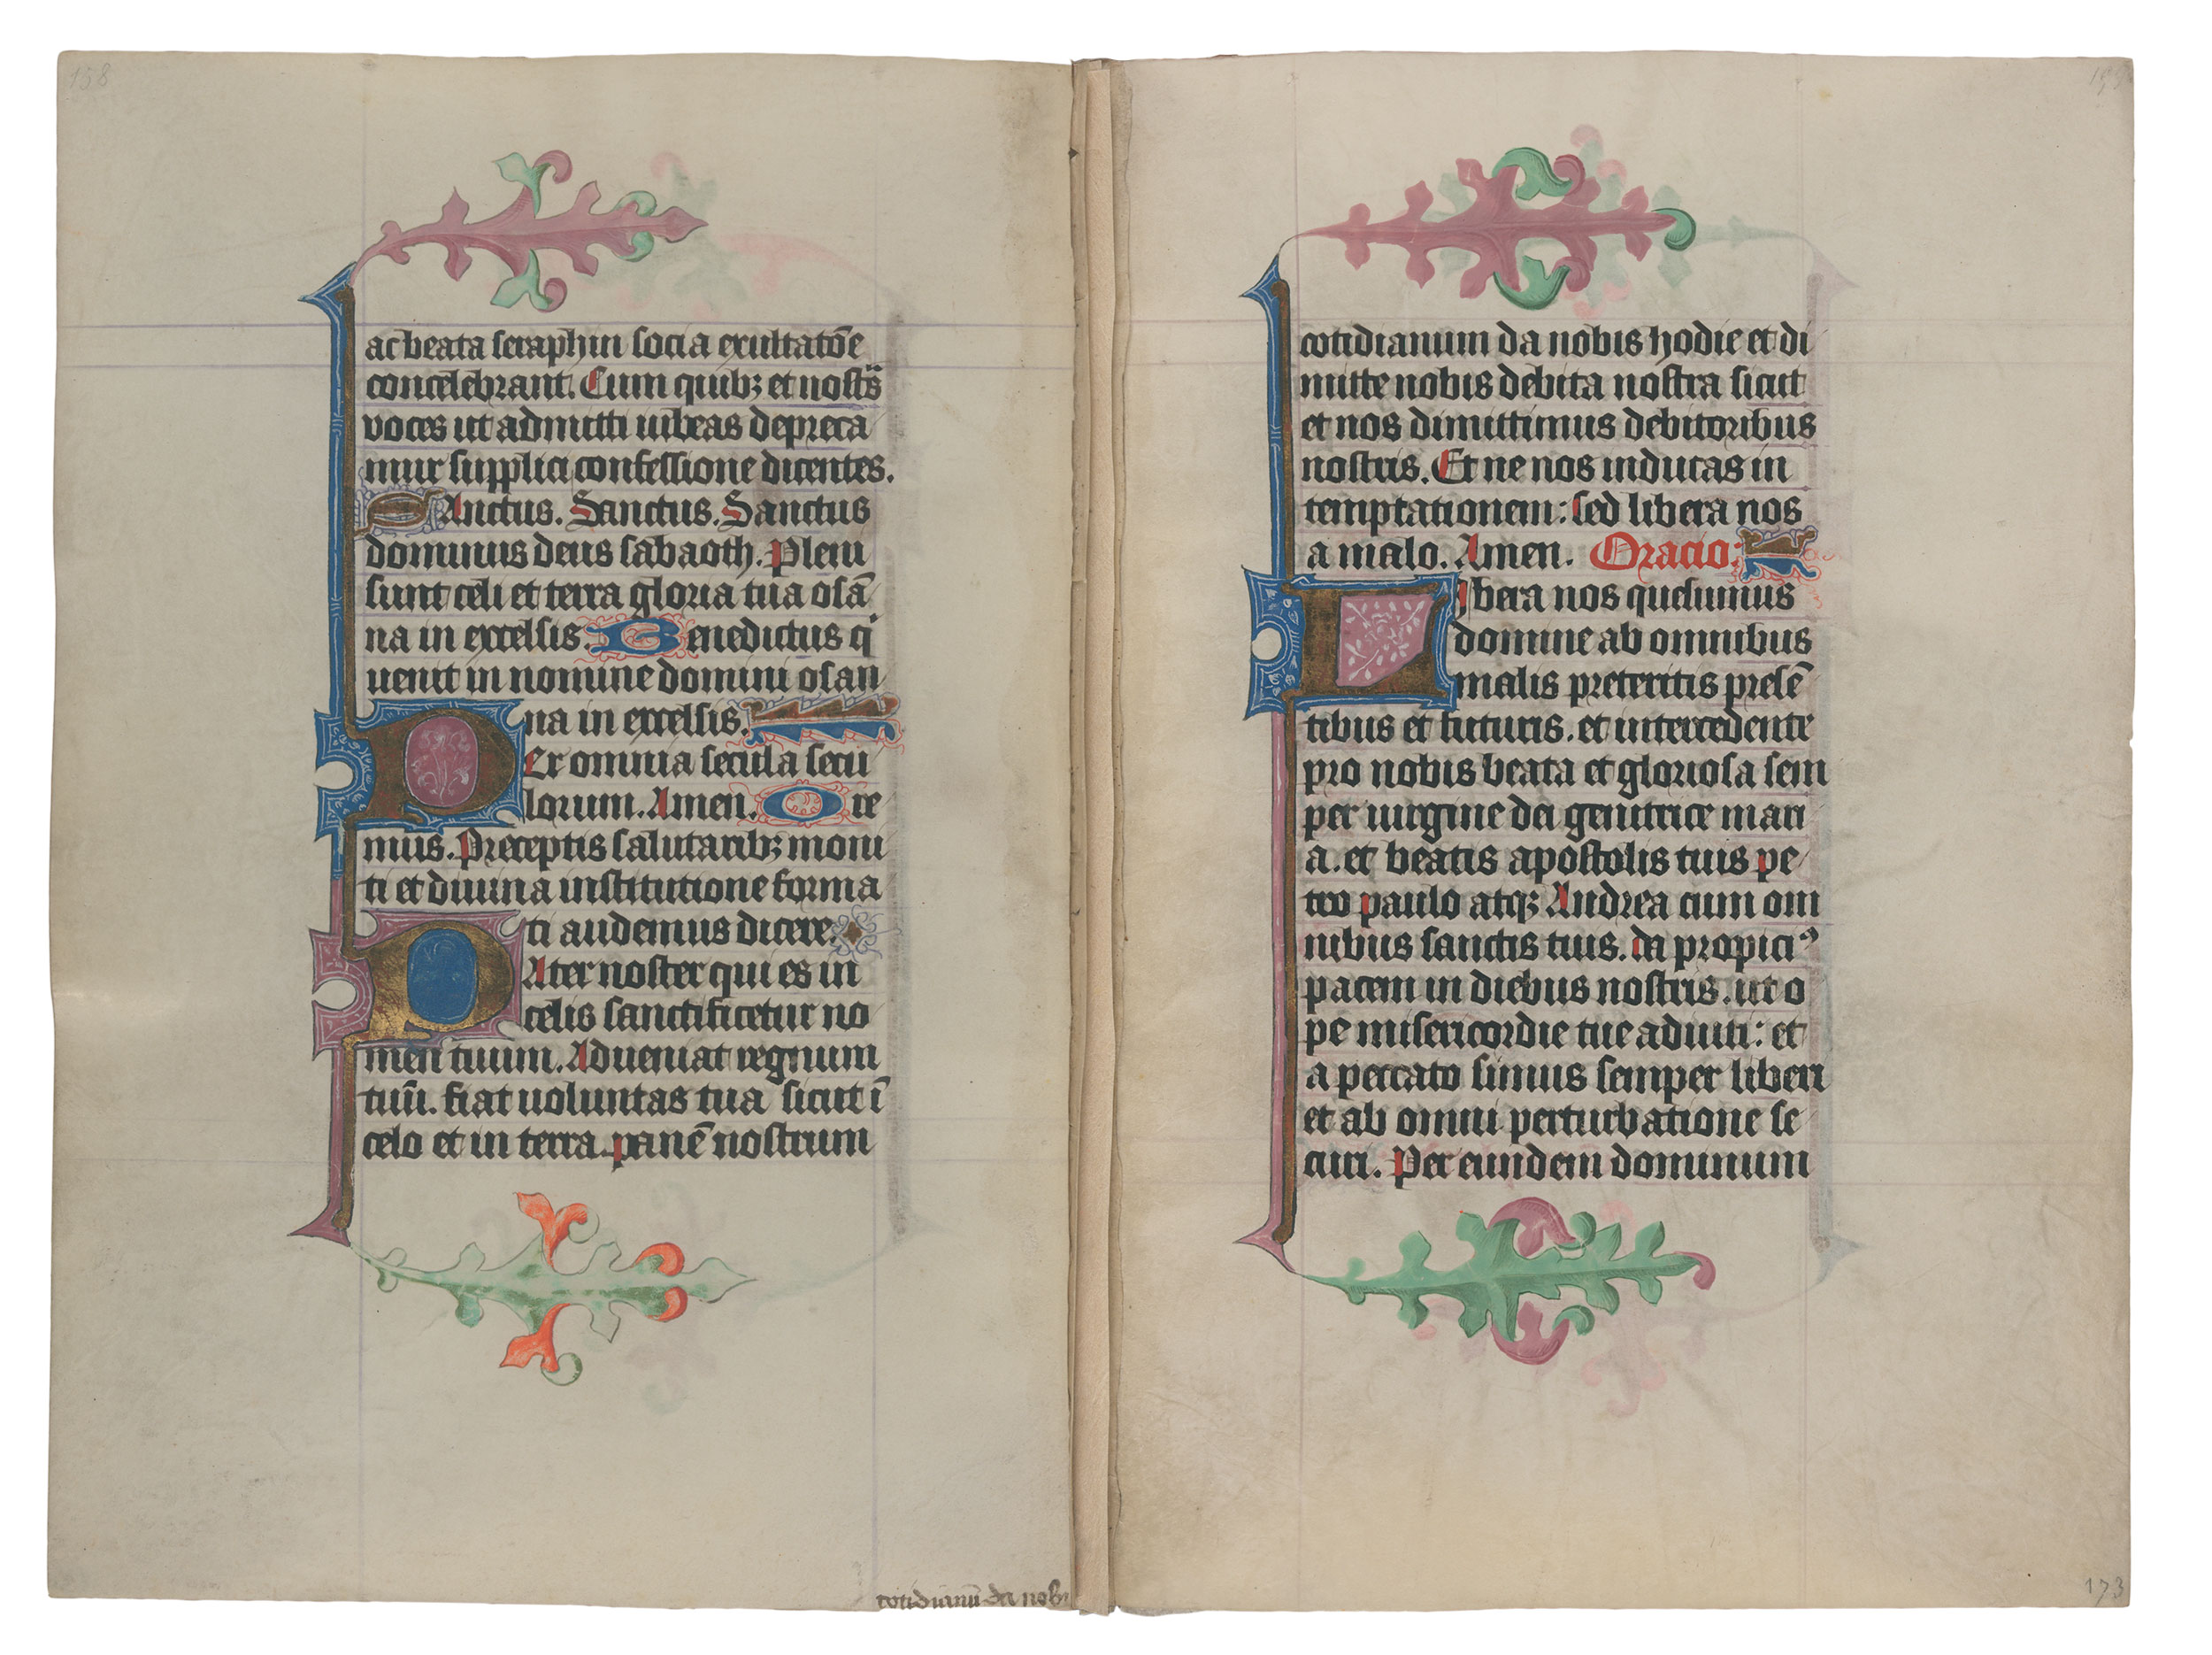 158
ac beata seraphin socia exultatōe
concelebrant. Cum quibꝫ et nostᷓs
voces ut admitti iubeas depreca
mur supplici confessione dicentes.
SAnctus. Sanctus. Sanctus
dominus deus sabaoth. Pleni
sunt celi et terra gloria tua osā
na in excelsis. Benedictus qͥ
uenit in nomine domini osan
na in excelsis.
PEr omnia secula secu
lorum. Amen. Ore
mus. Preceptis salutaribꝫ moni
ti et diuina institutione forma
ti audemus dicere.
PAter noster qui es in
celis sanctificetur no
men tuum. Adueniat regnum
tuū. fiat uoluntas tua sicut ī
celo et in terra. panē nostrum
cotidianū da nob
cotidianum da nobis hodie et di
mitte nobis debita nostra sicut
et nos dimittimus debitoribus
nostris. Et ne nos inducas in
temptationem: sed libera nos
a malo. Amen. Oracio:
LIbera nos quesumus
domine ab omnibus
malis preteritis presē
tibus et futuris. et intercedente
pro nobis beata et gloriosa sem
per uirgine dei genitrice mari
a. et beatis apostolis tuis pe
tro paulo atqꝫ Andrea cum om
nibus sanctis tuis. da propiciꝰ
pacem in diebus nostris. ut o
pe misericordie tue adiuti: et
a peccato simus semper liberi
et ab omni perturbatione se
curi. Per eundem dominum
173